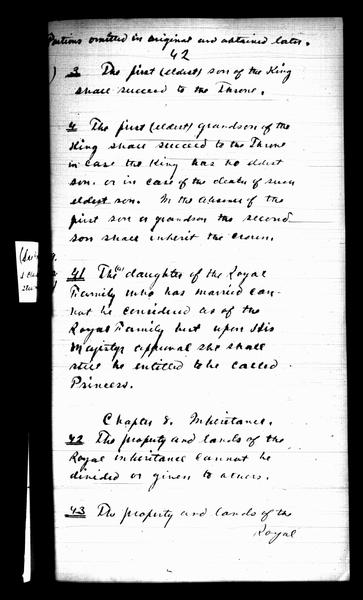 Portions omitted in original and obtained later.
42
) 3 The first (eldest) son of the King
shall succeed to the Throne.
4 The first (eldest) grandson of the
King shall succeed to the Throne
in case the King has no eldest
son. or in case of the death of such
eldest son. In the absence of the
first son or grandson the second
son shall inherit the crown.
41 The daughter of the Royal
Family who has married can-
not be considered as of the
Royal Family but upon His
Majestys approval she shall
still be entitled to be called
Princess.
Chapter 8. Inheritance.
42 The property and lands of the
Royal inheritance cannot be
divided or given to others.
43 The property and lands of the
Royal